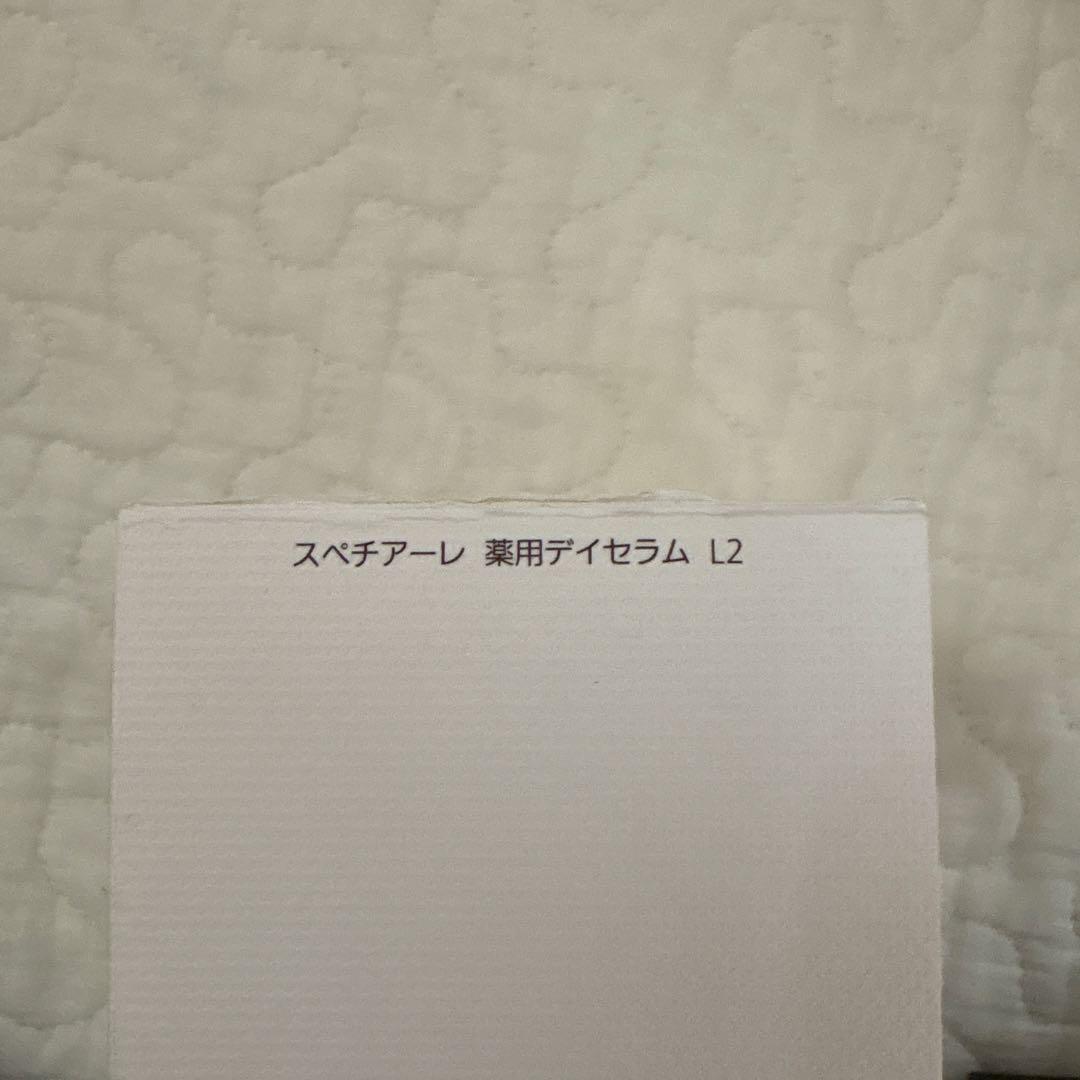 スペチアーレ 薬用デイセラム L2